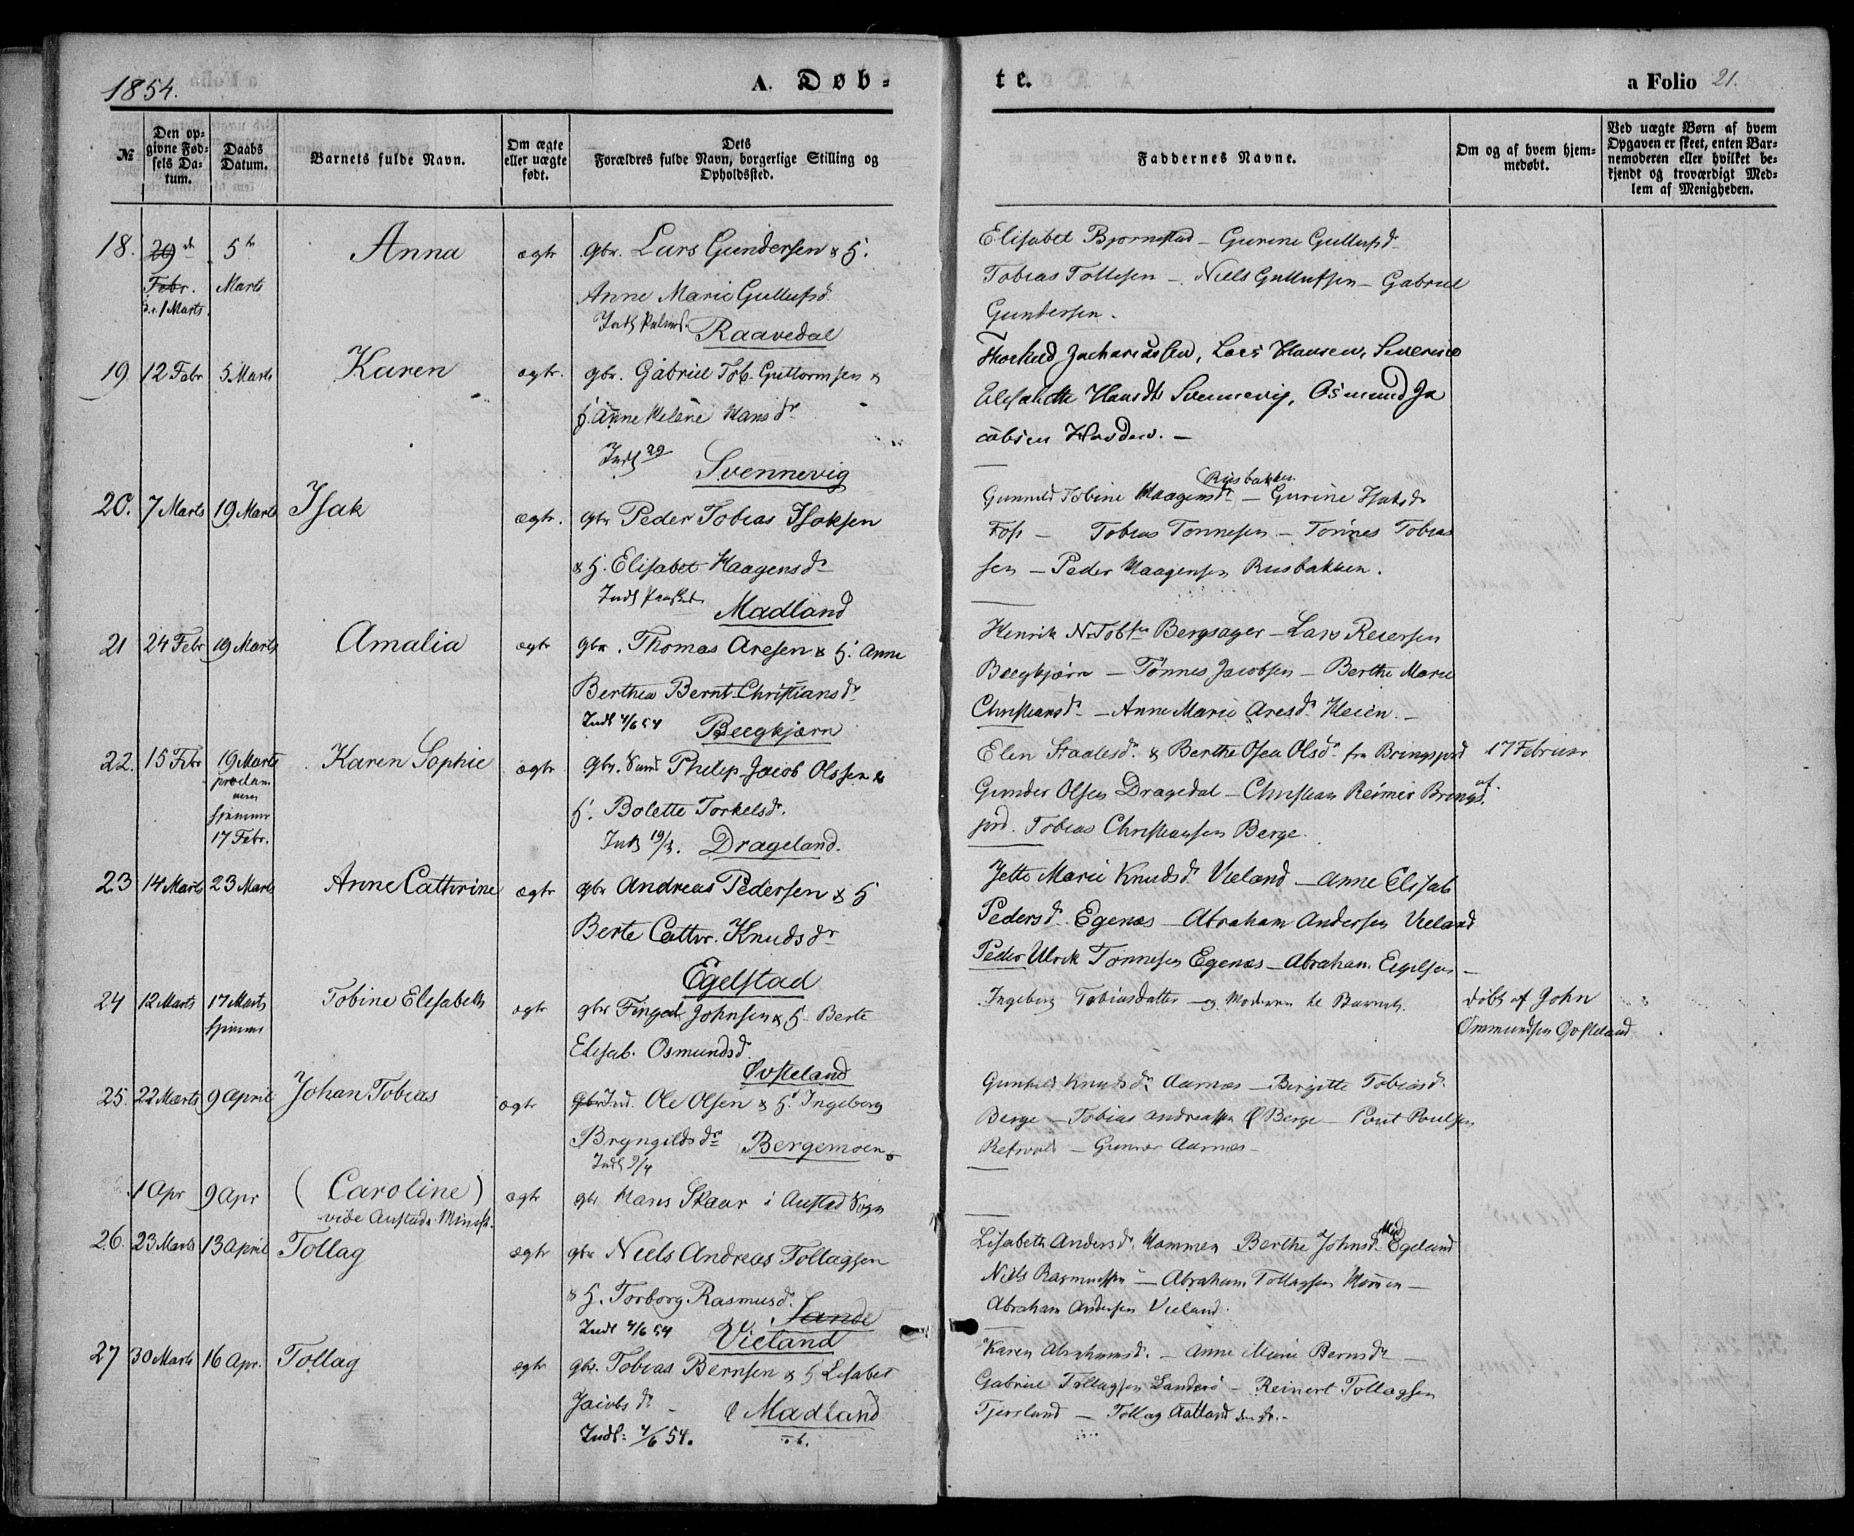 1854.
A. Døb-
te.
a Folio 21.
№
Den op-
givne Fød-
sels Da-
tum.
Daabs
Datum.
Barnets fulde Navn.
Om ægte
eller uægte
født.
Dets
Forældres fulde Navn, borgerlige Stilling og
Opholdssted.
Faddernes Navne.
Om og af hvem hjem-
medøbt.
Ved uægte Børn af hvem
Opgaven er skeet, enten Bar-
nemoderen eller hvilket be-
kjendt og troværdigt Med-
lem af Menigheden.
18.
Febr.
1 Marts
5te
Marts
Anna
ægte
gbr. Lars Gundersen & H.
Anne Marie Gullufsd.
Raavedal
Elisabet Bjørnestad – Gurine Gullufsdr
Tobias Tollesen – Niels Gullufsen – Gabriel
Gundersen.
19.
12 Febr
5 Marts
Karen
ægte.
gbr. Gabriel Tob. Guttormsen &
H. Anne Helene Hansdr
Indl 29
Svennevig
Zachariassen, Lars Hansen, Severine
Hansdtr Svennevig, Osmund Ja
cobsen
20.
7 Marts
19 Marts
Isak
ægte.
gbr Peder Tobias Isaksen
& H. Elisabet Haagensdr
Madland
Rusbakken
Gunnild Tobine Haagensdr – Gurine Isaksdr
Foss – Tobias Tønnesen – Tønnes Tobias
sen – Peder Haagensen Rusbakken.
21
24 Febr
19 Marts
Amalia
ægte
gbr. Thomas Aresen & H. Anne
Berthea Bernt. Christiansdr
Indl 4/6 54
Beegkjærn
Henrik N. Bergsager – Lars Reiersen
Beegkjærn – Tønnes Jacobsen – Berthe Marie
Christiansdr – Anne Marie Aresdr Heien. –
22.
15 Febr
19 Marts
hjemme
17 Febr.
Karen Sophie
ægte
gbr. Philip Jacob Olssen &
H. Bolette Torkelsdr.
Indl 19/3.
Drageland.
Elen Staalesdr & Berthe Osea Olsdr fra Bringsjord
Gunder Olsen Dragedal – Christian Reimer Brings
jord. Tobias Christiansen Berge.
17 Februar
23
14 Marts
23 Marts
Anne Cathrine
ægte
gbr Andreas Pedersen & H
Berte Cathr. Knudsdr
Egelstad
Jette Marie Knudsdr Vieland – Anne Elisab
Pedersdr Egenæs – Abraham Andersen Vieland
Peder Ulrik Tønnesen Egenæs – Abraham Egelsen –
24
12 Marts
17 Marts
hjemme
Tobine Elisabeth
ægte
gbr Johnsen & H. Berte
Elisab. Osmundsd.
Øvsteland
Ingeborg Tobiasdatter – og Moderen til Barnet.
døbt af John
Ommundsen Øvsteland
25.
22 Marts
9 April
Johan Tobias
ægte
Ind. Ole Olsen & H. Ingeborg
Bryngildsdr
Bergemoen
Indl 9/4
Gunhild Knudsdr Aarnæs – Birgitte Tobiasdr
Berge – Tobias Andreassen Ø Berge – Poulsen
– Gunner Aarnæs –
1 Apr
9 Apr
(Caroline)
vide Austads
ægte
gbr Hans Skaar i Austad Sogn
26.
23 Marts
13 April
Tollag
ægte
gbr Niels Andreas Tollagsen
& H. Torborg Rasmusdr.
Sande
Indl 4/6 54
Vieland
Lisabeth Andersdr. Hommen Berthe Johnsdr Egeland
Niels Rasmussen – Abraham Tollagsen –
Abraham Andersen Vieland.
27
30 Marts
16 Apr.
Tollag
ægte
gbr. Tobias Bernsen & H Lisabet
Jacobsdr –
Ø Madland
Indl: 4/6 54.
Karen Abrahamsdr. – Anne Marie Bernsdr –
Gabriel Tollagsen – Reinert Tollagsen
Tjersland – Tollag Aatland